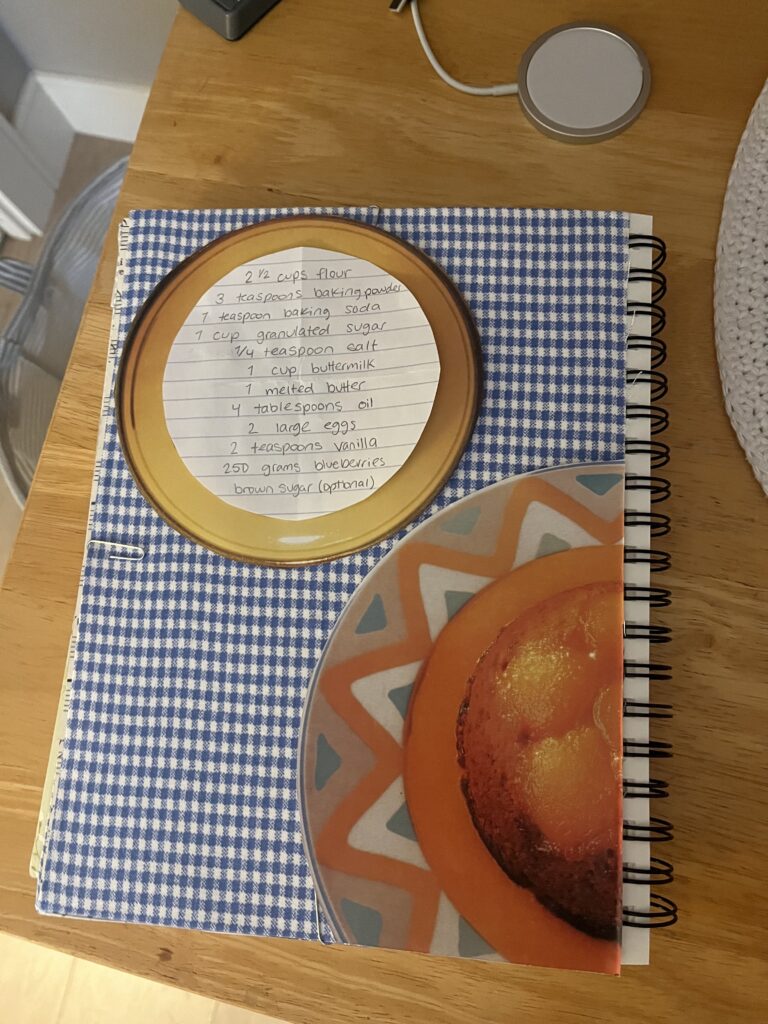 2 1/2 cups flour
3 teaspoons baking powder
1 teaspoon baking soda
1 cup granulated sugar
1/4 teaspoon salt
1 cup buttermilk
1 melted butter
4 tablespoons oil
2 large eggs
2 teaspoons vanilla
250 grams blueberries
brown sugar (optional)